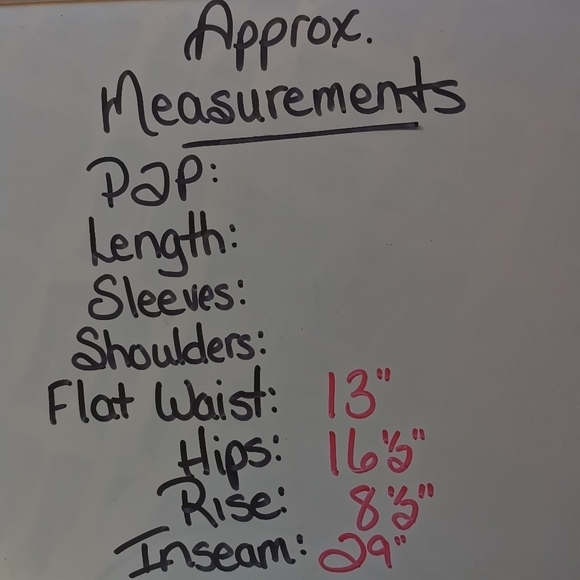 Approx.
Measurements
P2P:
Length:
Sleeves:
Shoulders:
Flat Waist: 13"
Hips: 16½"
Rise: 8½"
Inseam: 29"